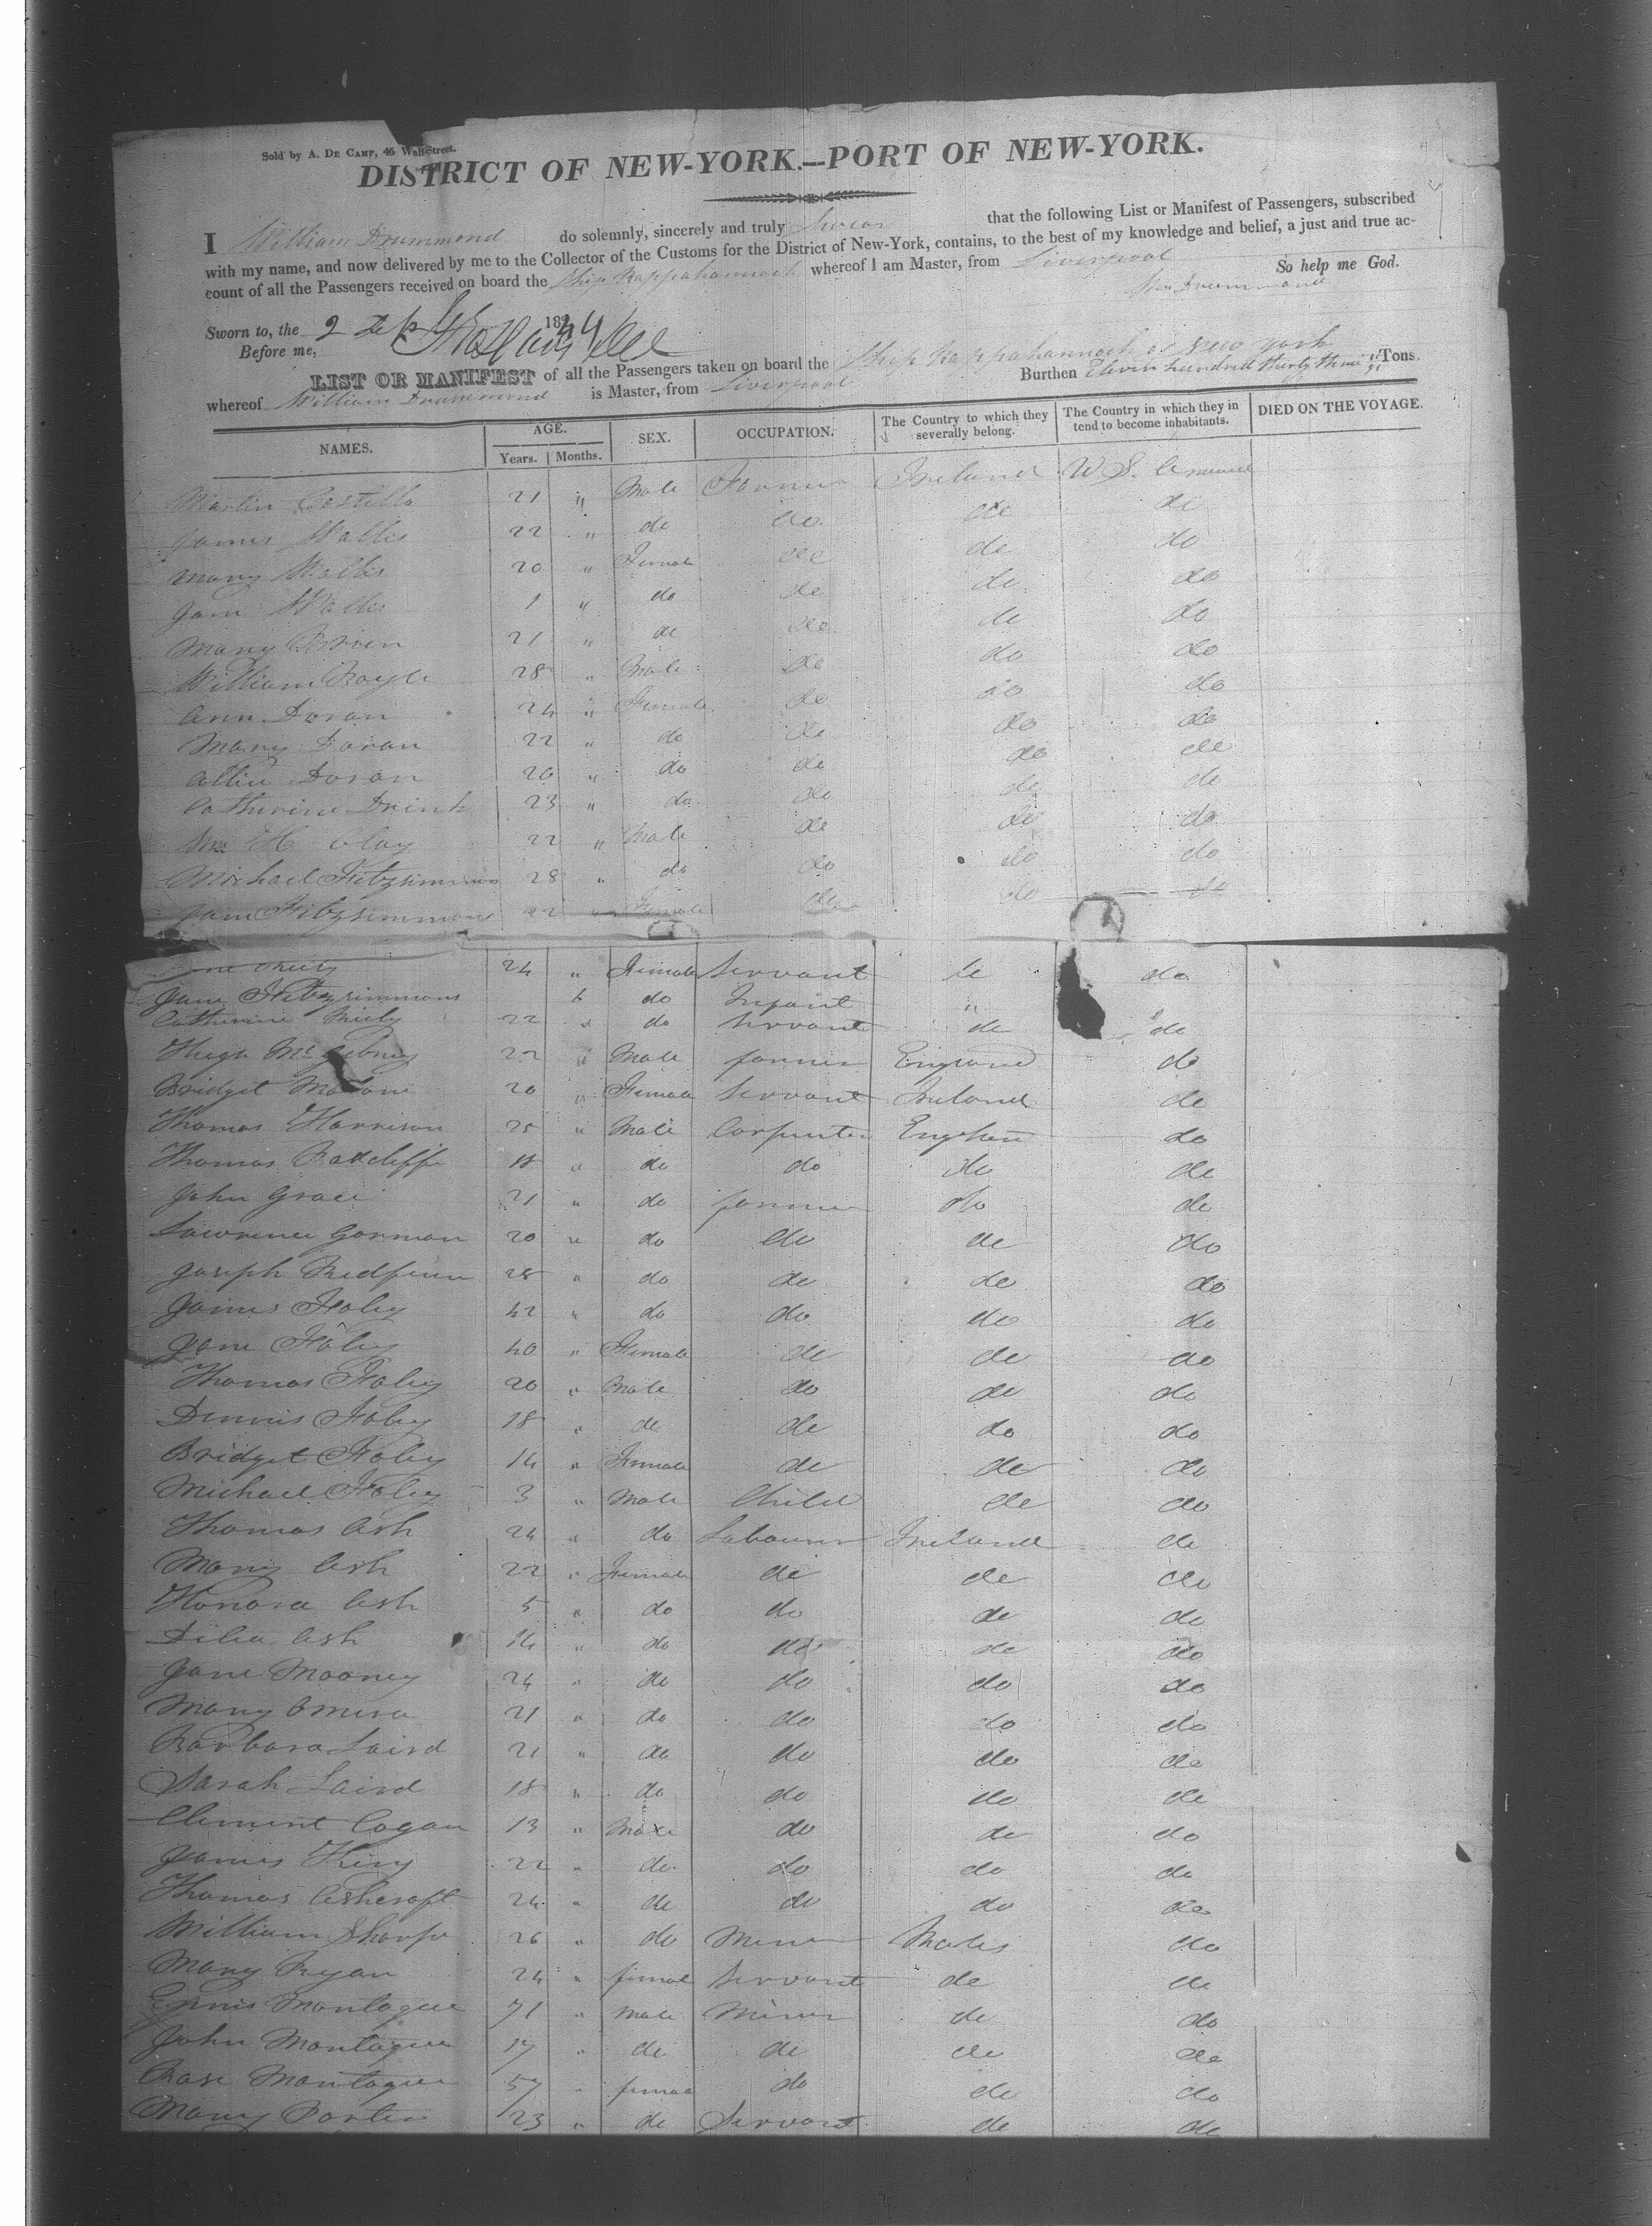 Sold by A. DE CAMP, 46 Wall-Street.
DISTRICT OF NEW-YORK.—PORT OF NEW-YORK.
I William Drummond do solemnly, sincerely and truly Swear that the following List or Manifest of Passengers, subscribed
with my name, and now delivered by me to the Collector of the Customs for the District of New-York, contains, to the best of my knowledge and belief, a just and true ac-
count of all the Passengers received on board the Ship Rappahannock whereof I am Master, from Liverpool
So help me God.
Wm Drummond
Sworn to, the 2 Sep 184
Before me,
LIST OR MANIFEST of all the Passengers taken on board the Ship Rappahannock of New York
whereof William Drummond is Master, from Liverpool Burthen Eleven hundred thirty three Tons.
NAMES. AGE. SEX. OCCUPATION. The Country to which they severally belong. The Country in which they intend to become inhabitants. DIED ON THE VOYAGE.
Years. Months.
Martin Costello 21 " Male Farmer Ireland U S America
James Wallis 22 " do do do do
Mary Wallis 20 " Female do do do
Jane Wallis 1 " do do do do
Mary Brien 21 " do do do do
William 28 " Male do do do
Ann Doran 24 " Female do do do
Mary Doran 22 " do do do do
Doran 20 " do do do do
Catherine Drink 23 " do do do do
Wm H Clay 22 " Male do do do
Michael Fitzsimmons 28 " do do do do
Jane Fitzsimmons 22 " Female do do do
24 " Female Servant do do
Jane Fitzsimmons 6 do Infant "
Catherine 22 " do Servant do do
Hugh McGibney 22 " Male farmer England do
Bridget Malone 20 " Female Servant Ireland do
Thomas Harrison 25 " Male Carpenter England do
Thomas Radcliffe 18 " do do do do
John Grace 21 " do farmer do do
Lawrence Gorman 20 " do do do do
Joseph Redfern 28 " do do do do
James Foley 42 " do do do do
Jane Foley 40 " Female do do do
Thomas Foley 20 " Male do do do
Dennis Foley 18 " do do do do
Bridget Foley 14 " Female do do do
Michael Foley 3 " Male Child do do
Thomas Ash 24 " do Labourer Ireland do
Mary Ash 22 " Female do do do
Honora Ash 5 " do do do do
Delia Ash 14 " do do do do
Jane Mooney 24 " do do do do
Mary Omera 21 " do do do do
Barbara Laird 21 " do do do do
Sarah Laird 18 " do do do do
Clement Cogan 13 " Male do do do
James King 22 " do do do do
Thomas Ashcroft 24 " do do do do
William Sharp 26 " do Miner Wales do
Mary Ryan 24 " female Servant do do
Montague 71 " Male Miner do do
John Montague 17 " do do do do
Rose Montague 57 " female do do do
Mary Porter 23 " do Servant do do